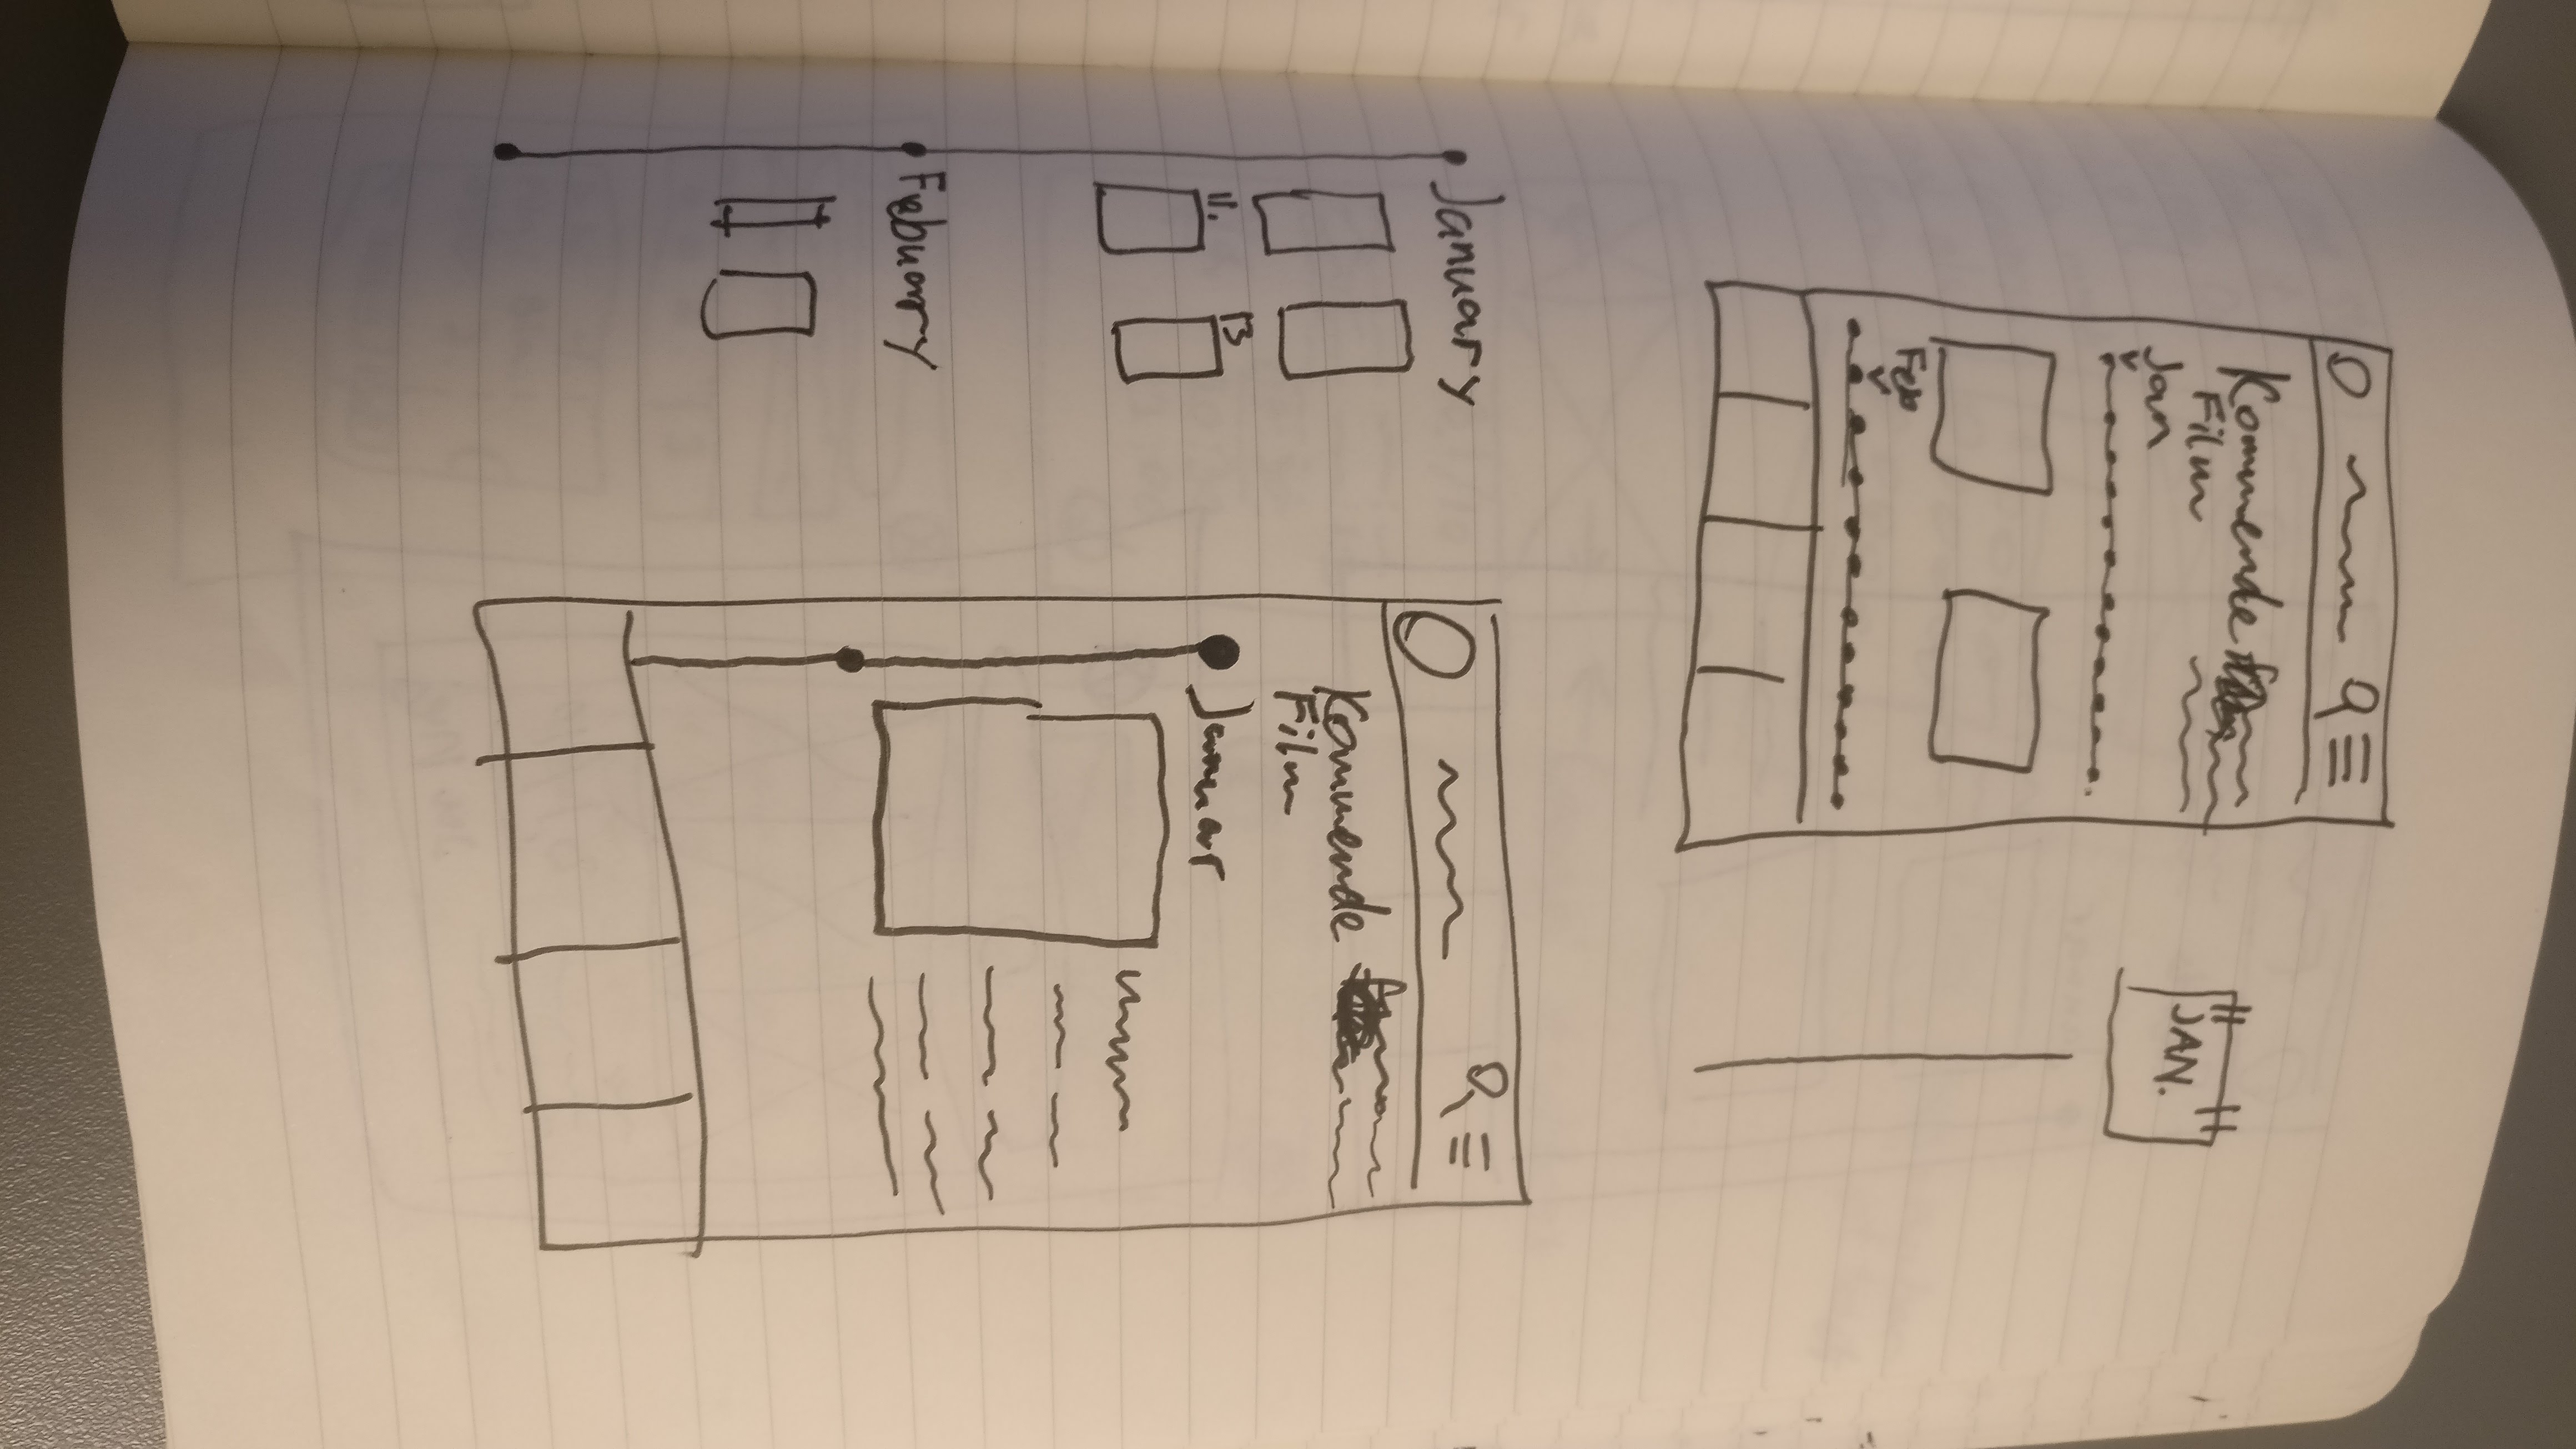 Kommende
Film
Jan
Feb
JAN.
January
11.
13
Febuary
Kommende
Film
Januar